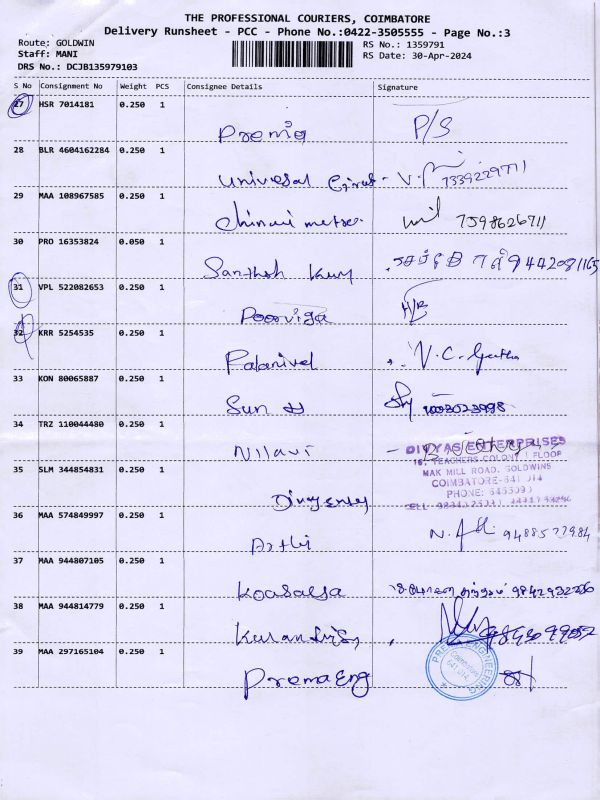 THE PROFESSIONAL COURIERS, COIMBATORE
Delivery Runsheet - PCC - Phone No.:0422-3505555 - Page No.:3
Route: GOLDWIN
RS No.: 1359791
Staff: MANI
RS Date: 30-Apr-2024
DRS No.: DCJB135979103
S No Consignment No Weight PCS Consignee Details Signature
27 HSR 7014181 0.250 1
Prema P/S
28 BLR 4604162284 0.250 1
Universal - V. 7339229711
29 MAA 108967585 0.250 1
7598626711
30 PRO 16353824 0.050 1
Santhosh 9442081165
31 VPL 522082653 0.250 1
Poorviga H/B
32 KRR 5254535 0.250 1
Palanivel V.C. Geetha
33 KON 80065887 0.250 1
Sun
34 TRZ 110044480 0.250 1
Nilavi
DIVYAS ENTERPRISES
16, TEACHERS COLONY, I FLOOR
35 SLM 344854831 0.250 1
MAK MILL ROAD, GOLDWINS
COIMBATORE-641 014
PHONE:
36 MAA 574849997 0.250 1
Arthi N. 9488577984
37 MAA 944807105 0.250 1
9842932236
38 MAA 944814779 0.250 1
39 MAA 297165104 0.250 1
Prema Eng